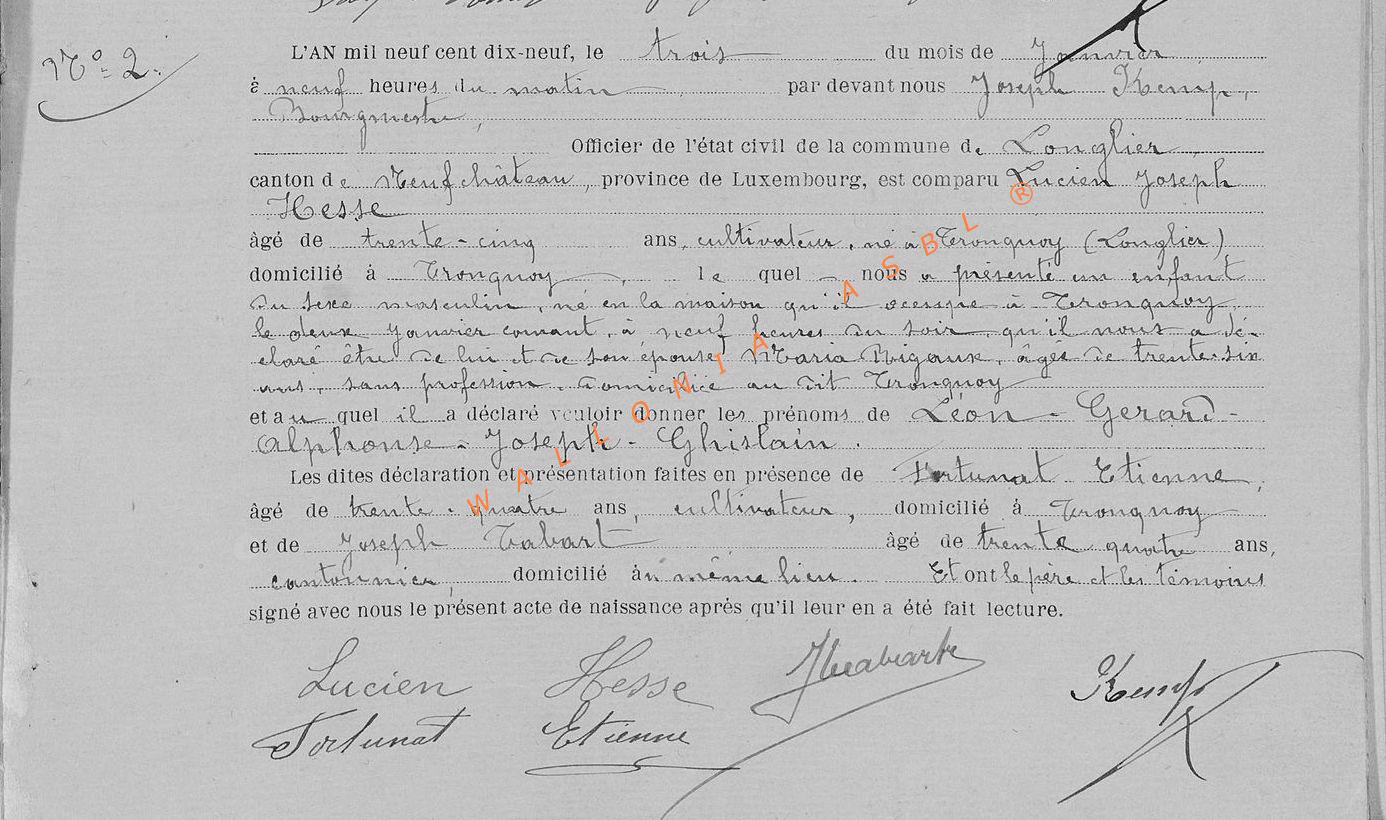 N° 2.
L'AN mil neuf cent dix-neuf, le trois du mois de Janvier
à neuf heures du matin par devant nous Joseph Kemp,
Bourgmestre,
Officier de l'état civil de la commune de Longlier
canton de Neufchâteau, province de Luxembourg, est comparu Lucien Joseph
Hesse
âgé de trente-cinq ans, cultivateur, né à Tronquoy (Longlier)
domicilié à Tronquoy, le quel nous a présenté un enfant
du sexe masculin, né en la maison qu'il occupe à Tronquoy,
le deux Janvier courant, à neuf heures du soir, qu'il nous a dé-
claré être de lui et de son épouse, Maria Rigaux, âgée de trente-six
ans, sans profession, domiciliée au dit Tronquoy
et au quel il a déclaré vouloir donner les prénoms de Léon - Gerard -
Alphonse - Joseph - Ghislain.
Les dites déclaration et présentation faites en présence de Fortunat Etienne,
âgé de trente-quatre ans, cultivateur, domicilié à Tronquoy
et de Joseph Tabart âgé de trente quatre ans,
cantonnier domicilié au même lieu. Et ont le père et les témoins
signé avec nous le présent acte de naissance après qu'il leur en a été fait lecture.
Lucien Hesse Kemp
Fortunat Etienne
WALLONIA ASBL ®